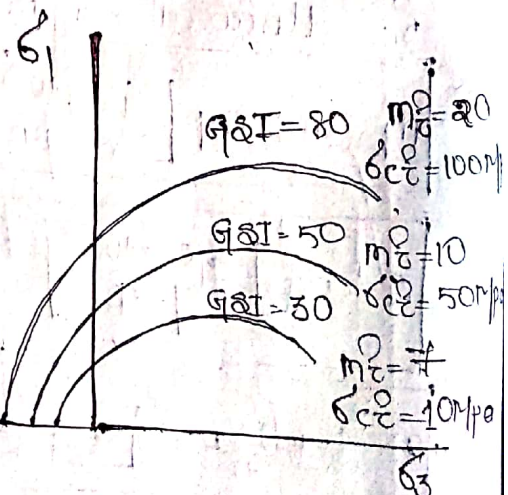 σ1
GSI=80
mi=20
σci=100M
GSI=50
mi=10
σci=50Mpa
GSI=30
mi=7
σci=10Mpa
σ3